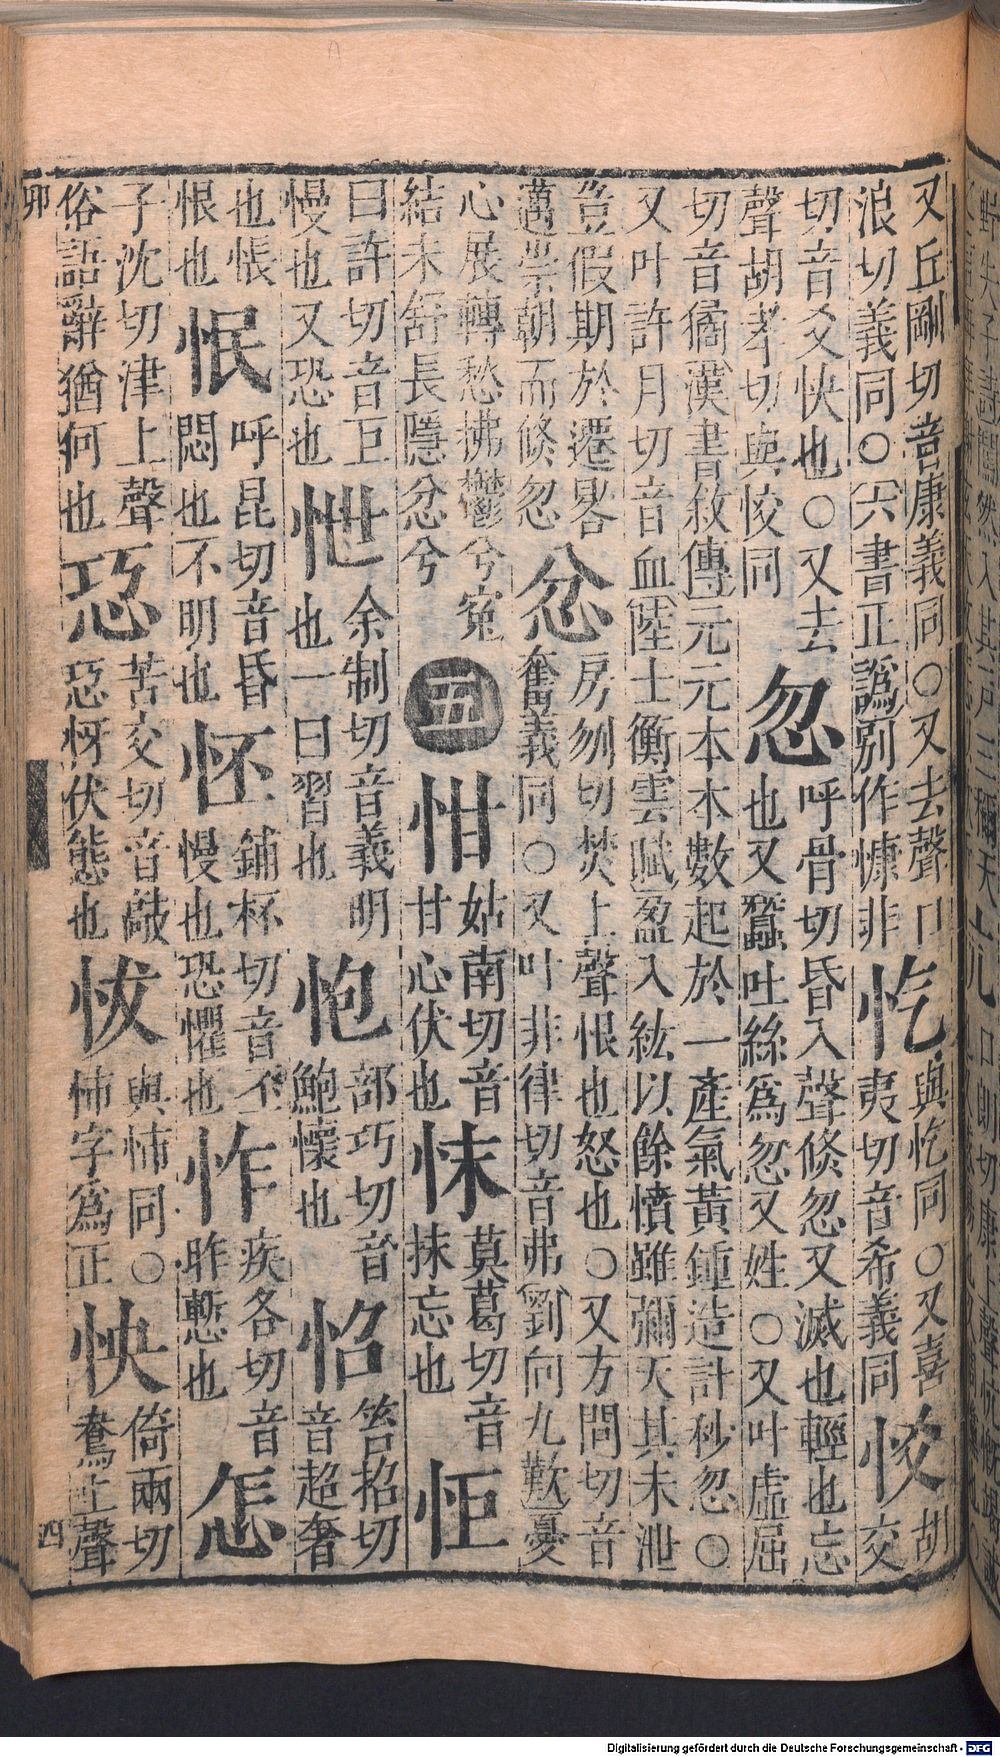 又丘剛切音康義同○又去聲口
浪切義同○六書正譌別作慷非
忔
與忔同○又喜
夷切音希義同
恔
胡
交
切音爻快也○又去
聲胡孝切與恔同
忽
呼骨切昏入聲倏忽又滅也輕也忘
也又蠶吐絲爲忽又姓○又叶虛屈
切音矞漢書敘傳元元本本數起於一產氣黃鍾造計秒忽○
又叶許月切音血陸士衡雲賦盈入紘以餘憤雖彌天其未泄
豈假期於遷晷
邁崇朝而倏忽
忿
房刎切焚上聲恨也怒也○又方問切音
奮義同○又叶非律切音弗劉向九歎憂
心展轉愁拂鬱兮寃
結未舒長隱忿兮
五
怈
姑南切音
甘心伏也
怽
莫葛切音
抹忘也
怇
曰許切音巨
慢也又恐也
怈
余制切音義明
也一曰習也
怉
部巧切音
鮑懷也
怊
笞招切
音超奢
也悵
恨也
怋
呼昆切音昏
悶也不明也
怌
鋪杯切音丕
慢也恐懼也
怍
疾各切音
昨慙也
怎
子沈切津上聲
俗語辭猶何也
㤍
苦交切音敲
㤍㤉伏態也
怶
與怖同○
怖字爲正
怏
倚兩切
鴦上聲
卯
四
Digitalisierung gefördert durch die Deutsche Forschungsgemeinschaft - DFG